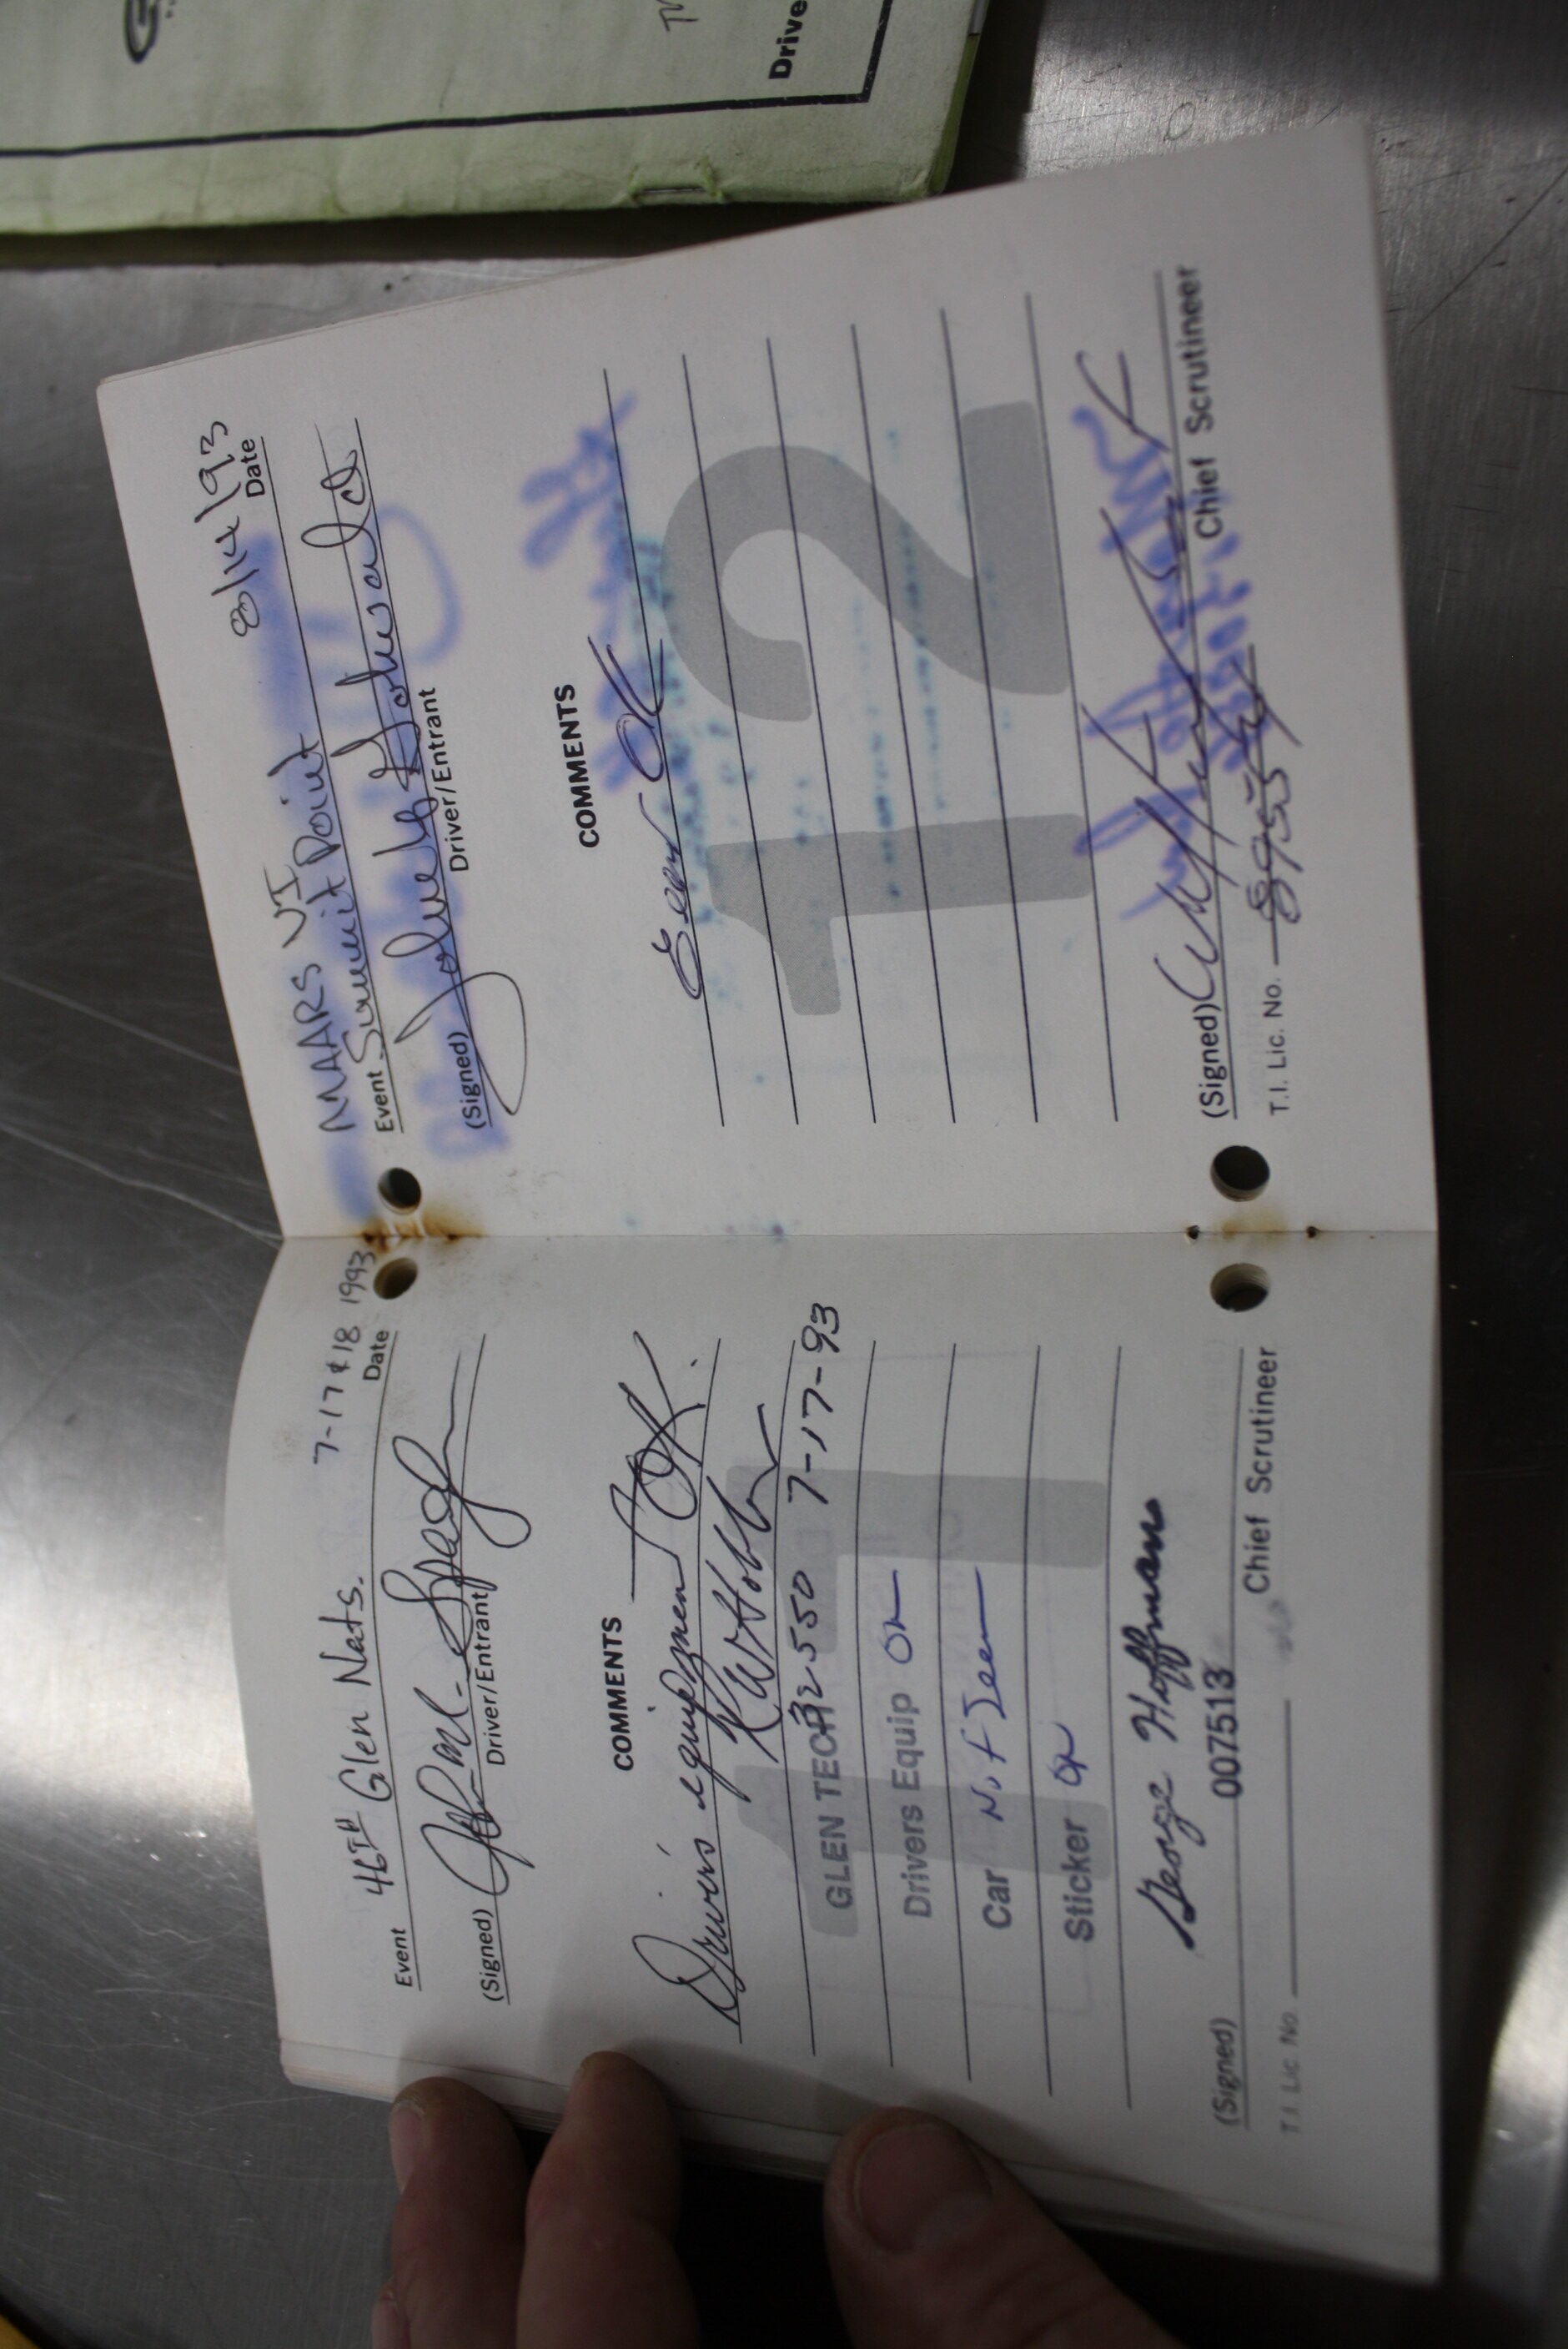 46TH Glen Nats. 7-17 & 18 1993
Event Date
(Signed)
Driver/Entrant
COMMENTS
Drivers equipment OK.
KW Hobb
32550 7-17-93
GLEN TECH
Drivers Equip OK
Car Not Seen
Sticker OK
11
George Hoffmann
(Signed) 007513
Chief Scrutineer
T.I. Lic. No.
MARRS VI 8/14/93
Event Summit Point Date
(Signed)
Driver/Entrant
COMMENTS
Gear OK
12
(Signed) Chief Scrutineer
T.I. Lic. No.
Drive